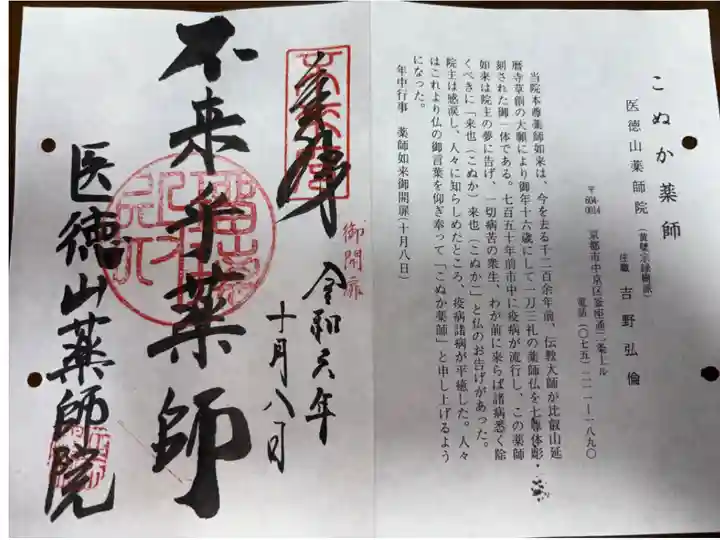 こぬか薬師
医徳山薬師院(黄檗宗
住職 吉野弘倫
〒604-0014 京都市中京区釜座通二条上ル
電話(〇七五)
当院本尊薬師如来は、今を去る千二百余年前、伝教大師が比叡山延
暦寺草創の大願により御年十六歳にして一刀三礼の薬師仏を七尊体彫・
刻された御一体である。七百五十年前市中に疫病が流行し、この薬師
如来は院主の夢に告げ、一切病苦の衆生、わが前に来らば諸病悉く除
くべきに「来也(こぬか)来也(こぬか)」と仏のお告げがあった。
院主は感涙し、人々に知らしめたところ、疫病諸病が平癒した。人々
はこれより仏の御言葉を仰ぎ奉って「こぬか薬師」と申し上げるよう
になった。
年中行事 薬師如来御開扉(十月八日)
御開扉
奉拝 令和六年
十月八日
不来乎薬師
医徳山薬師院